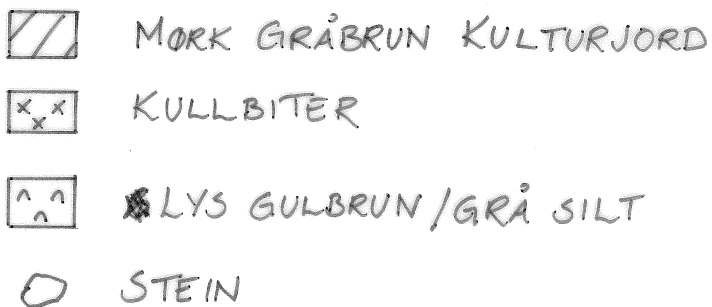 MØRK GRÅBRUN KULTURJORD
KULLBITER
LYS GULBRUN/GRÅ SILT
STEIN